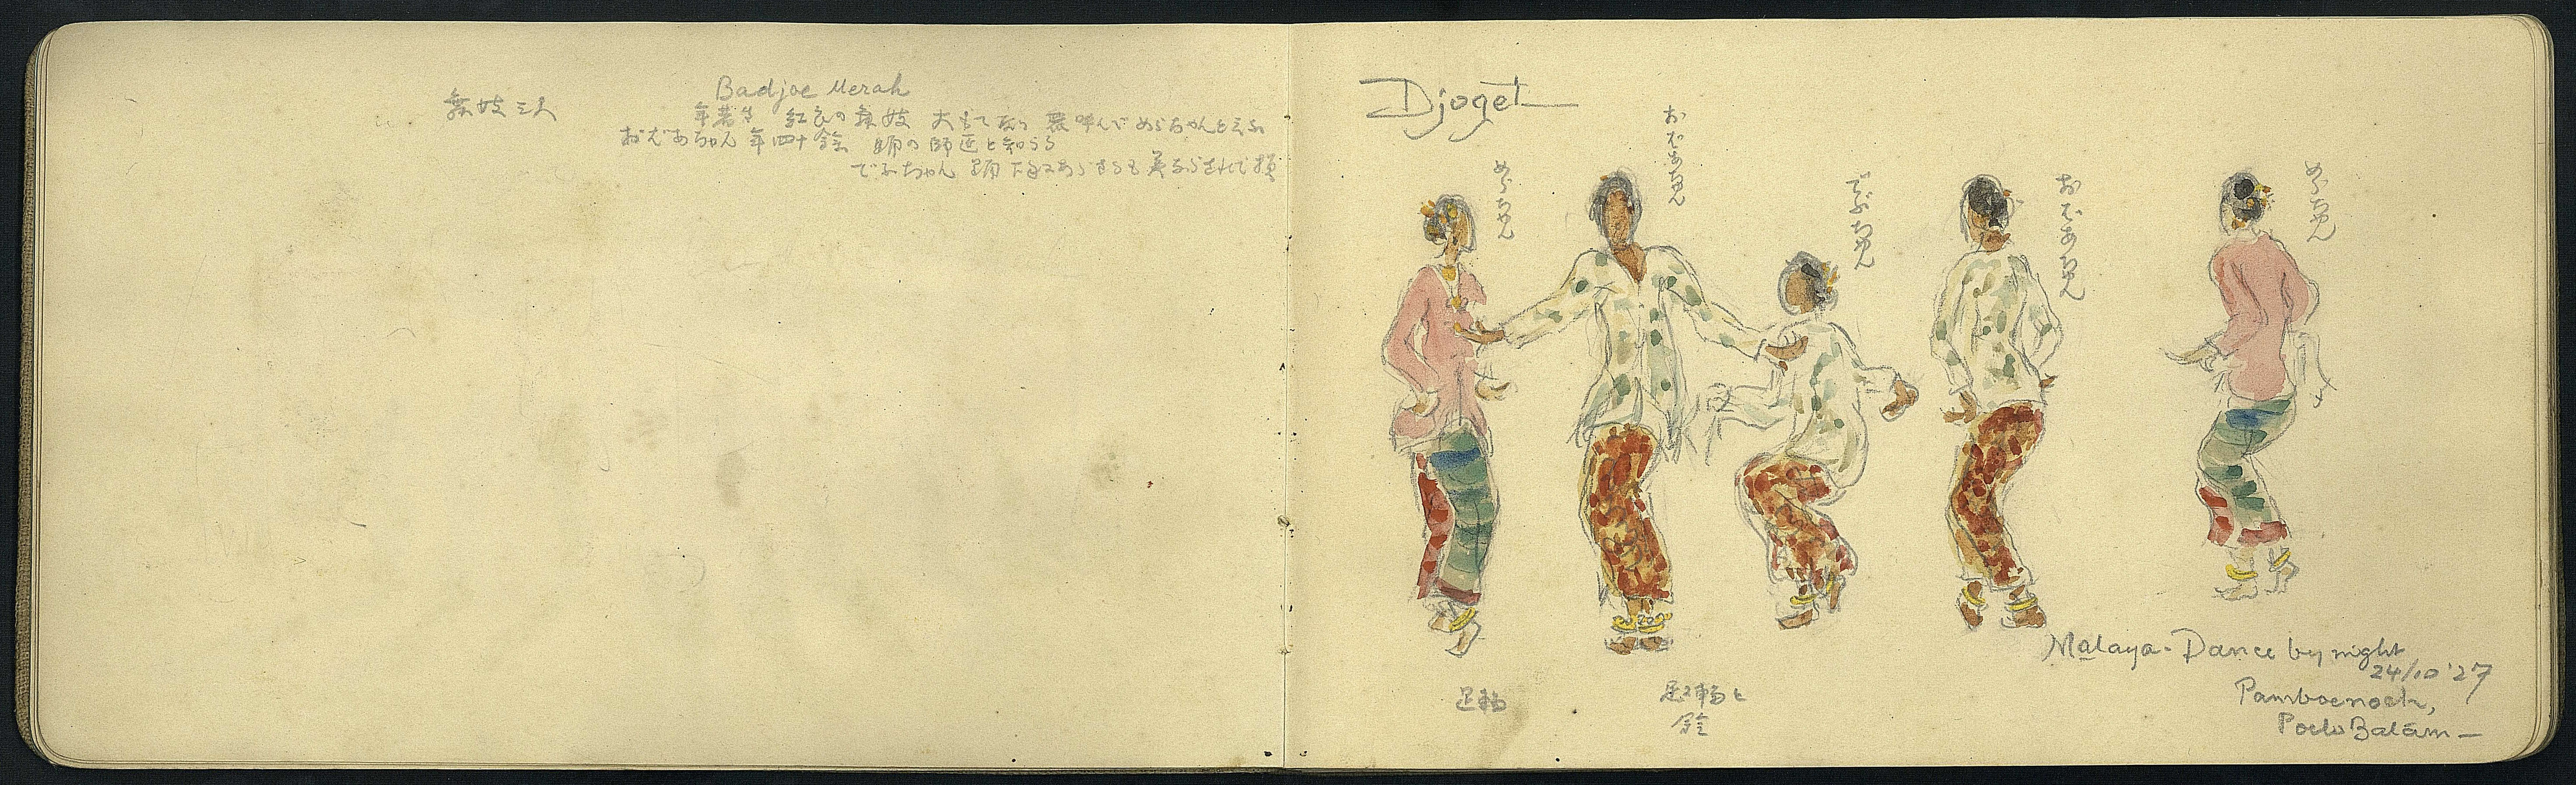 舞妓三人
Badjoe Merah
年若き 紅衣の舞妓 大もて 衆呼んで めらちゃんと云ふ
おばあちゃん 年四十余 師匠と知らる
でぶちゃん 踊
Djoget
めらちゃん
おばあちゃん
でぶちゃん
おばあちゃん
めらちゃん
足輪
足輪と
鈴
Malaya-Dance by night
24/10 '27
Pamboenoeh,
Poelo Batam—